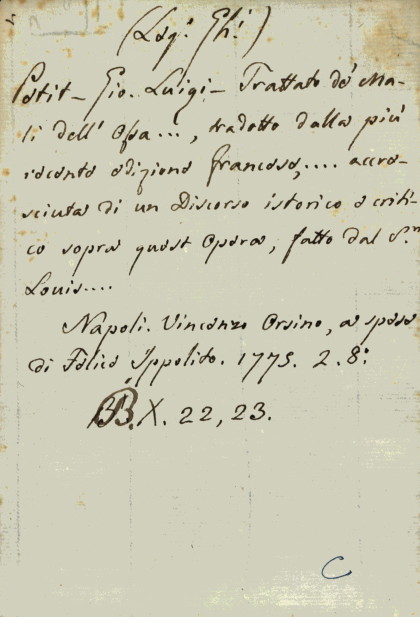 (Leg. Gh.)
Petit – Gio. Luigi – Trattato de' Ma-
li dell' Ossa..., tradotto dalla più
recente edizione francese,.... accre-
sciuta di un Discorso istorico e criti-
co sopra quest Opera, fatto dal S.r
Louis....
Napoli. Vincenzo Orsino, a spese
di Felice Ippolito. 1775. 2. 8:
BB. X. 22, 23.
C